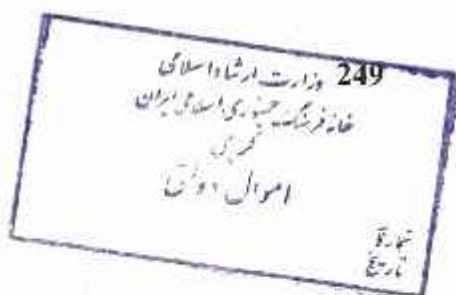 249
وزارت ارشاد اسلامی
خانه فرهنگ جمهوری اسلامی ایران
کراچی
اموال دولتی
شماره
تاریخ